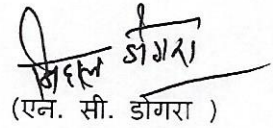 डोगरा
(एन. सी. डोगरा )